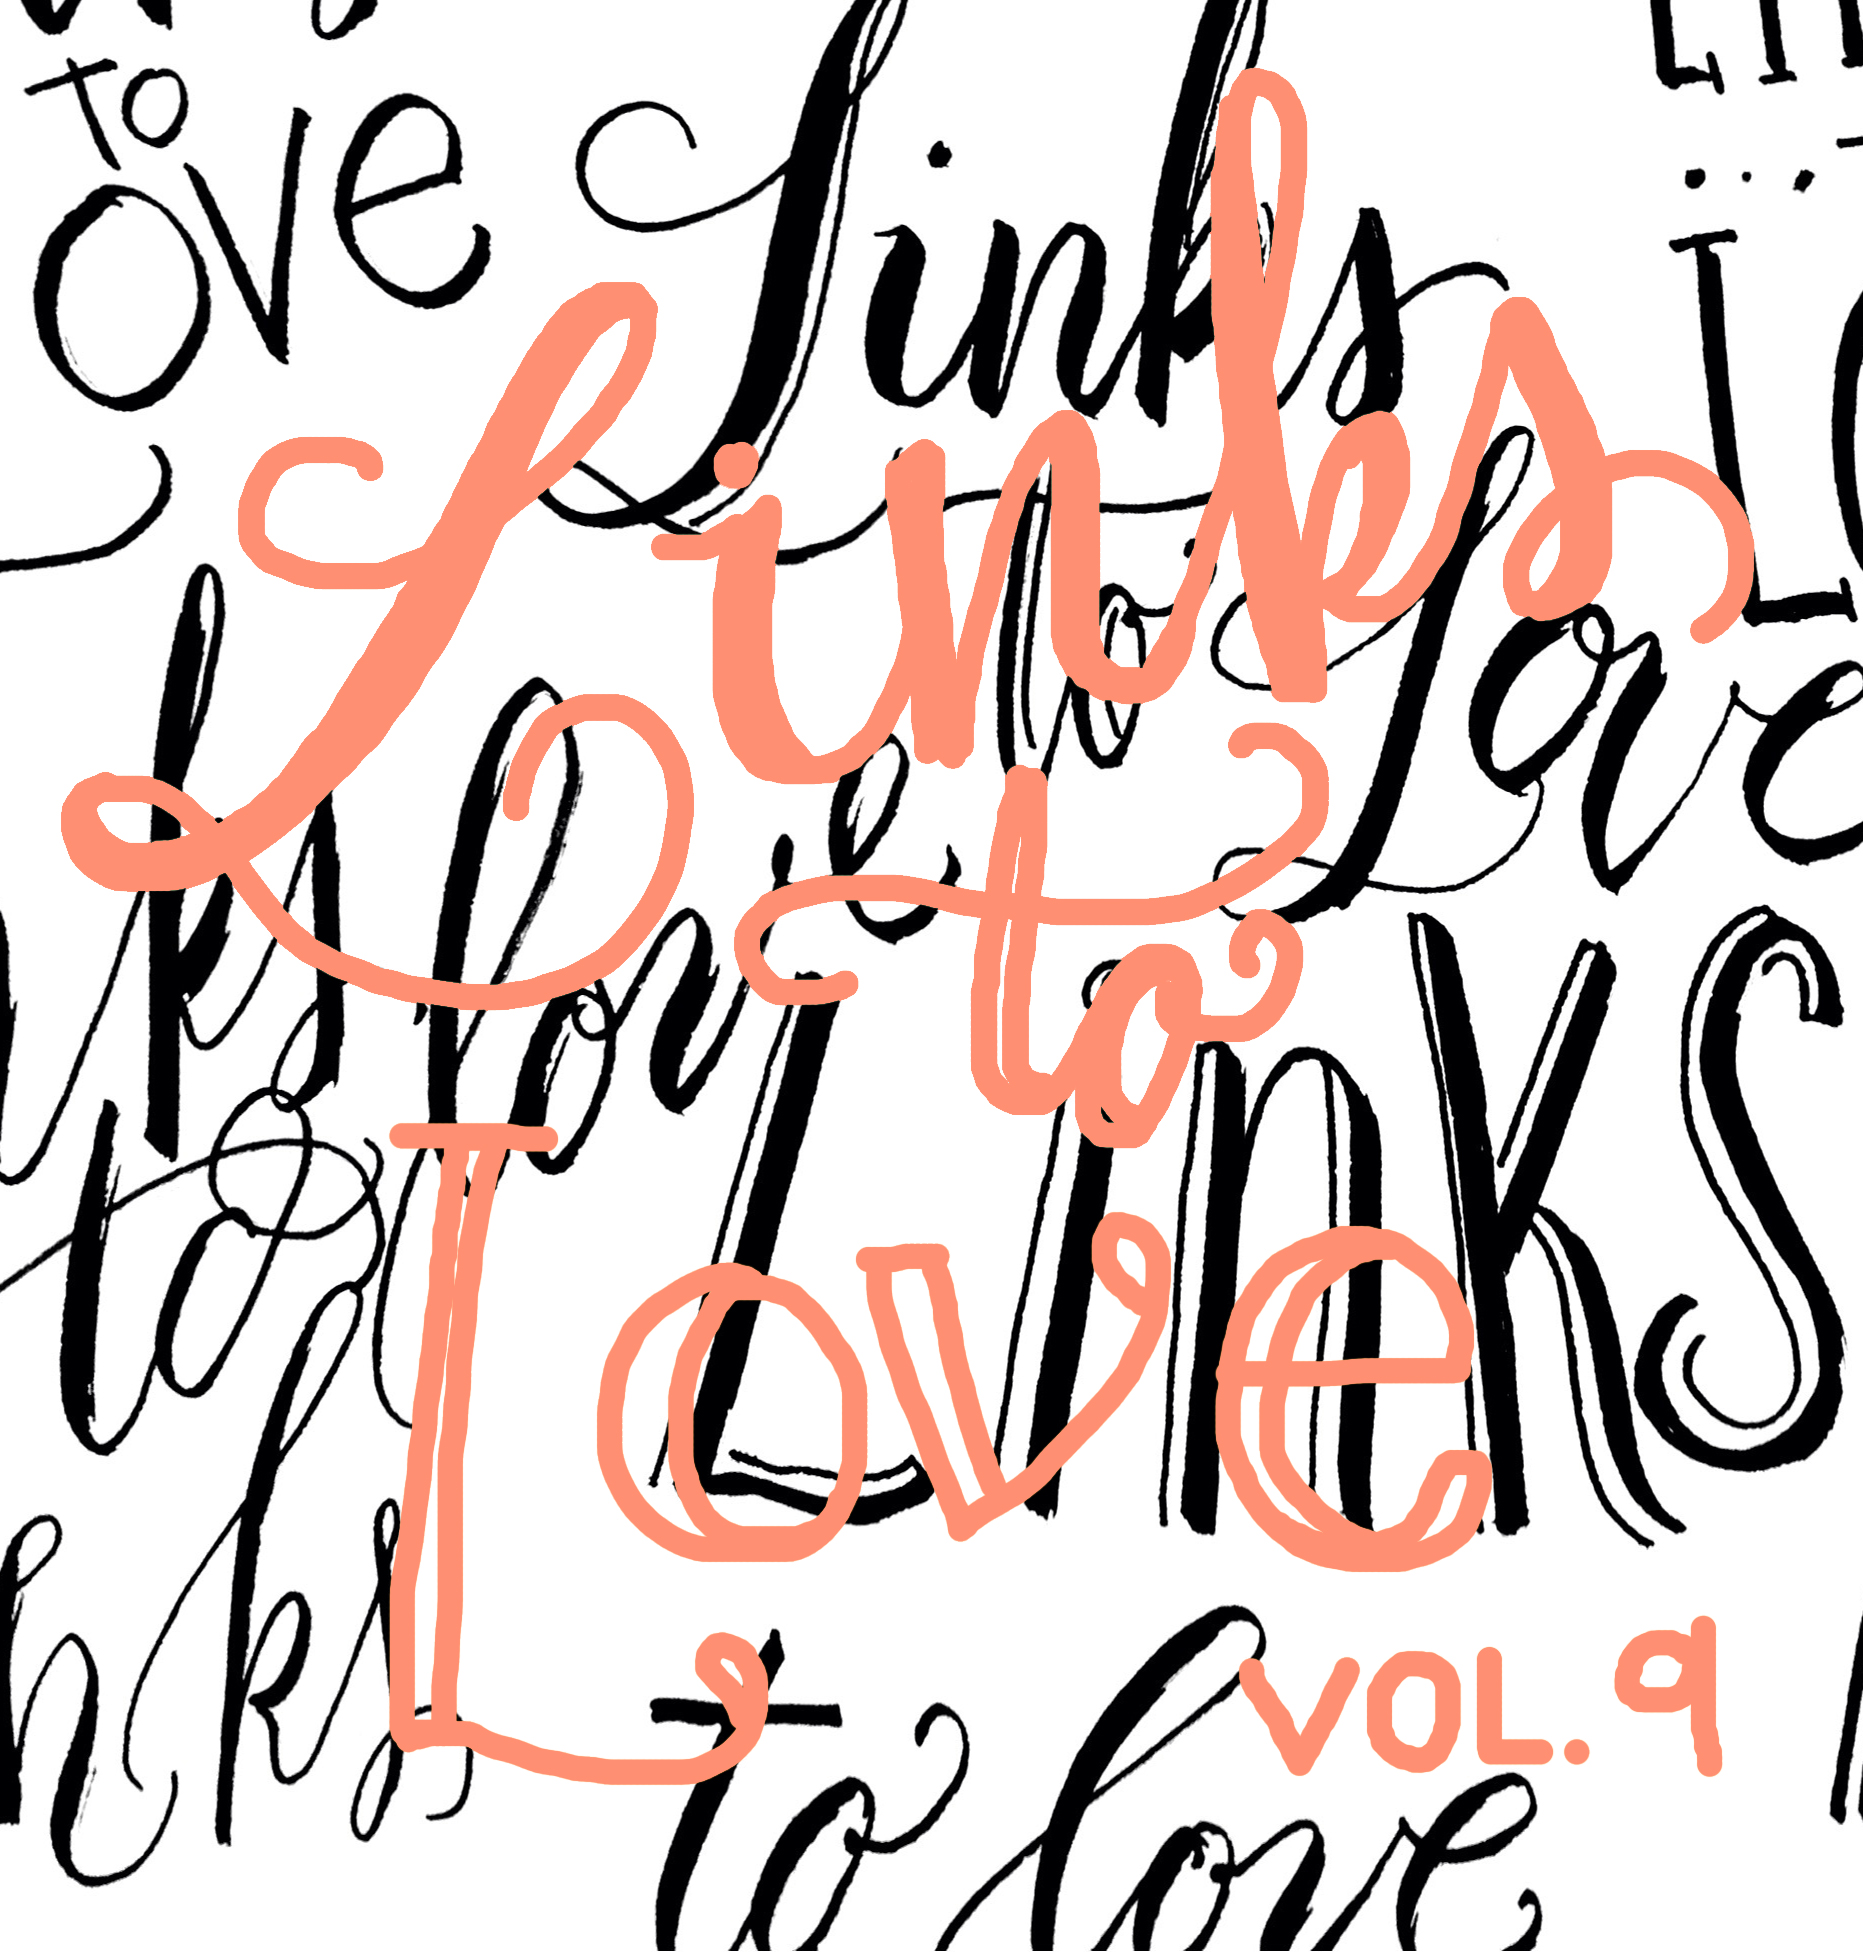 TO
Links
Links
to Love
love
to
LINKS
to
Love
VOL. 9
to love